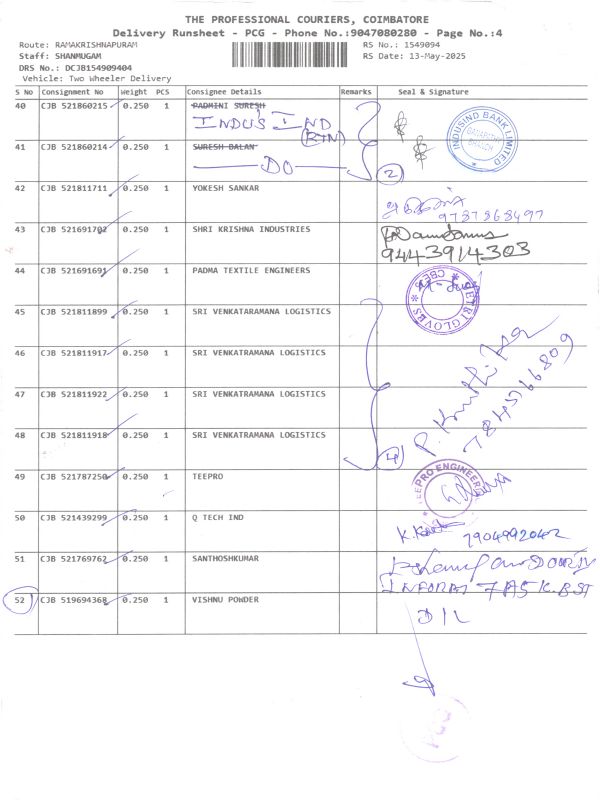 THE PROFESSIONAL COURIERS, COIMBATORE
Delivery Runsheet - PCG - Phone No.:9047080280 - Page No.:4
Route: RAMAKRISHNAPURAM RS No.: 1549094
Staff: SHANMUGAM RS Date: 13-May-2025
DRS No.: DCJB154909404
Vehicle: Two Wheeler Delivery
S No Consignment No Weight PCS Consignee Details Remarks Seal & Signature
40 CJB 521860215 0.250 1 PADMINI SURESH
INDUS IND
(RTN)
INDUSIND BANK LIMITED
41 CJB 521860214 0.250 1 SURESH BALAN
DO
2
42 CJB 521811711 0.250 1 YOKESH SANKAR
9787868497
43 CJB 521691702 0.250 1 SHRI KRISHNA INDUSTRIES
9443914303
44 CJB 521691691 0.250 1 PADMA TEXTILE ENGINEERS
GLOVES
45 CJB 521811899 0.250 1 SRI VENKATARAMANA LOGISTICS
46 CJB 521811917 0.250 1 SRI VENKATRAMANA LOGISTICS
47 CJB 521811922 0.250 1 SRI VENKATRAMANA LOGISTICS
48 CJB 521811918 0.250 1 SRI VENKATRAMANA LOGISTICS
4
49 CJB 521787250 0.250 1 TEEPRO
TEEPRO ENGINEERS
50 CJB 521439299 0.250 1 Q TECH IND
7904992042
51 CJB 521769762 0.250 1 SANTHOSHKUMAR
INFORM
52 CJB 519694368 0.250 1 VISHNU POWDER
D/L